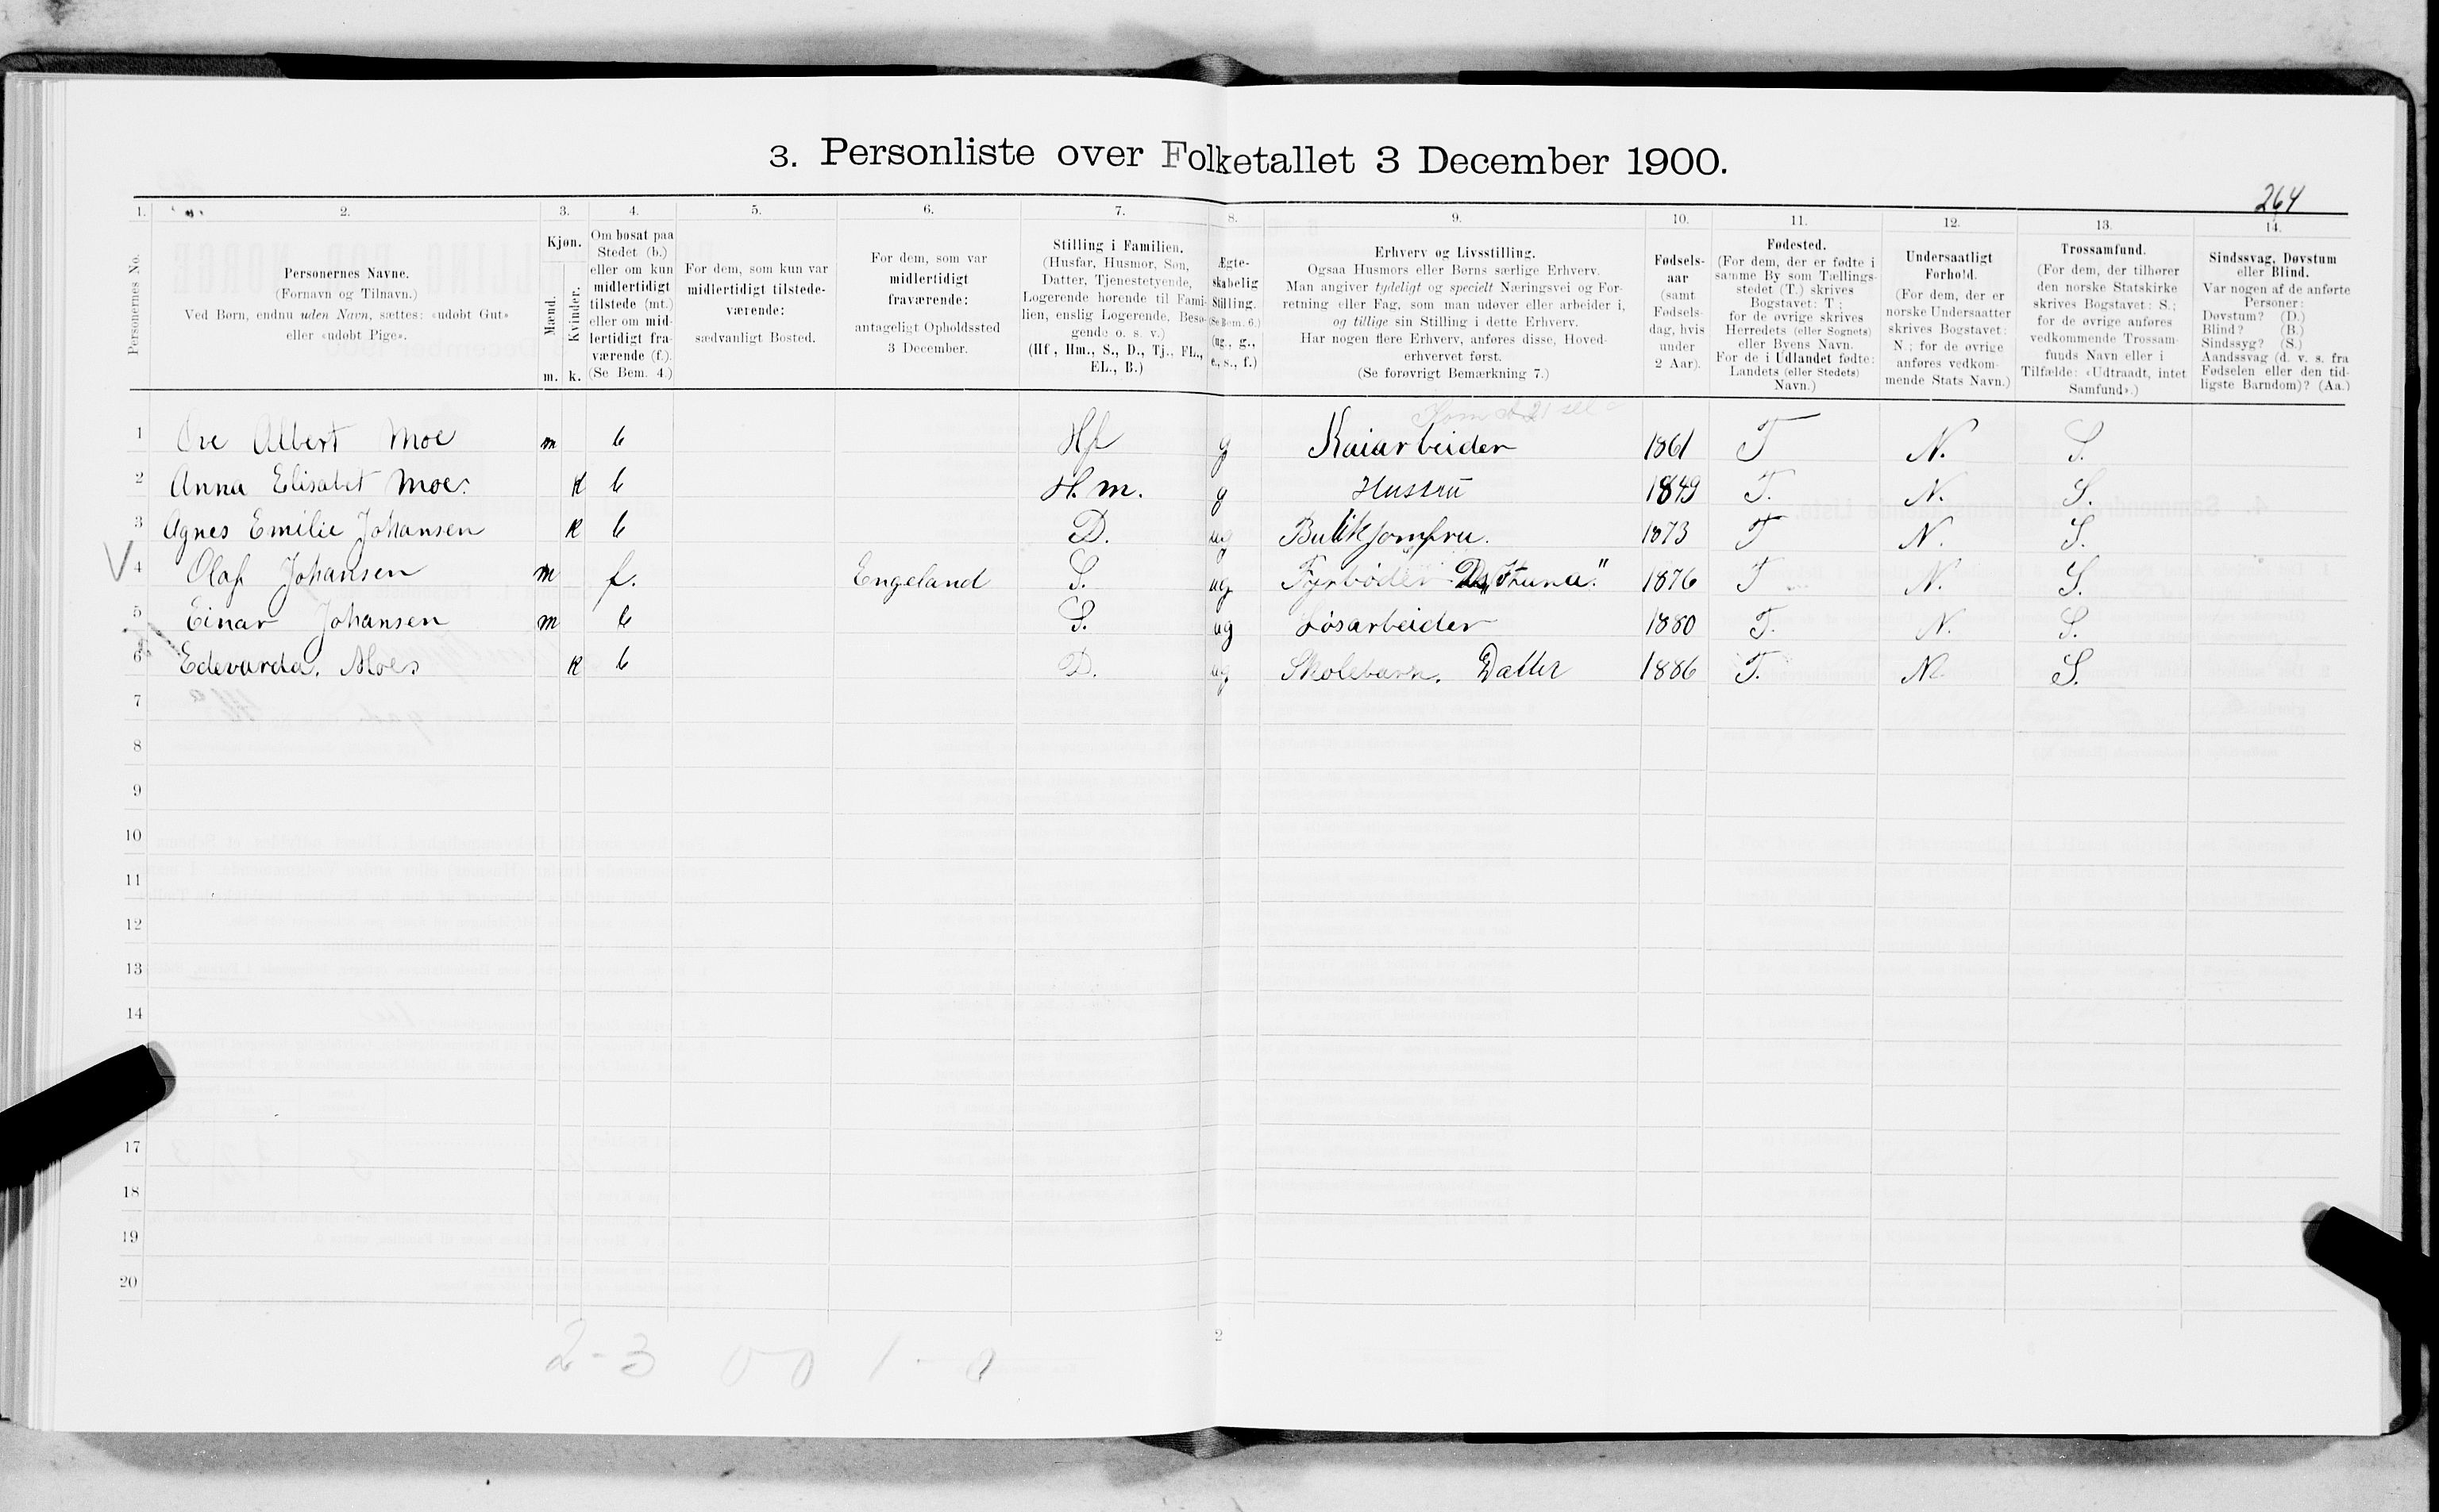 3. Personliste over Folketallet 3 December 1900.
264
1. 2. 3. 4. 5. 6. 7. 8. 9. 10. 11. 12. 13. 14.
Personernes No.
Personernes Navne.
(Fornavn og Tilnavn.)
Ved Børn, endnu uden Navn, sættes: «udøbt Gut»
eller «udøbt Pige».
Kjøn.
Mænd.
Kvinder.
m. k.
Om bosat paa
Stedet (b.)
eller om kun
midlertidigt
tilstede (mt.)
eller om mid-
lertidigt fra-
værende (f.).
(Se Bem. 4.)
For dem, som kun var
midlertidigt tilstede-
værende:
sædvanligt Bosted.
For dem, som var
midlertidigt
fraværende:
antageligt Opholdssted
3 December.
Stilling i Familien.
(Husfar, Husmor, Søn,
Datter, Tjenestetyende,
Logerende hørende til Fami-
lien, enslig Logerende, Besø-
gende o. s. v.)
(Hf., Hm., S., D., Tj., FL.,
EL., B.)
Ægte-
skabelig
Stilling.
(Se Bem. 6.)
(ug., g.,
e., s., f.)
Erhverv og Livsstilling.
Ogsaa Husmors eller Børns særlige Erhverv.
Man angiver tydeligt og specielt Næringsvei og For-
retning eller Fag, som man udøver eller arbeider i,
og tillige sin Stilling i dette Erhverv.
Har nogen flere Erhverv, anføres disse, Hoved-
erhvervet først.
(Se forøvrigt Bemærkning 7.)
Fødsels-
aar
(samt
Fødsels-
dag, hvis
under
2 Aar).
Fødested.
(For dem, der er fødte i
samme By som Tællings-
stedet (T.) skrives
Bogstavet: T;
for de øvrige skrives
Herredets (eller Sognets)
eller Byens Navn.
For de i Udlandet fødte:
Landets (eller Stedets)
Navn.)
Undersaatligt
Forhold.
(For dem, der er
norske Undersaatter
skrives Bogstavet:
N.; for de øvrige
anføres vedkom-
mende Stats Navn.)
Trossamfund.
(For dem, der tilhører
den norske Statskirke
skrives Bogstavet: S.;
for de øvrige anføres
vedkommende Trossam-
funds Navn eller i
Tilfælde: «Udtraadt, intet
Samfund».)
Sindssvag, Døvstum
eller Blind.
Var nogen af de anførte
Personer:
Døvstum? (D.)
Blind? (B.)
Sindssyg? (S.)
Aandssvag (d. v. s. fra
Fødselen eller den tid-
ligste Barndom)? (Aa.)
1 Ove Albert Moe m b Hf g Kaiarbeider 1861 T N. S.
2 Anna Elisabet Moe. k b H.m. g Hustru 1849 T. N. S.
3 Agnes Emilie Johansen k b D. ug Butikjomfru. 1873 T N. S.
4 Olaf Johansen m f. Engeland S. ug Fyrbøder Ds „Fruna" 1876 T N. S.
5 Einar Johansen m b S. ug Løsarbeider 1880 T. N. S.
6 Edevarda. Moes k b D. ug. Skolebarn. Datter 1886 T. N. S.
7
8
9
10
11
12
13
14
17
18
19
20
2-3 0-0 1-0
2